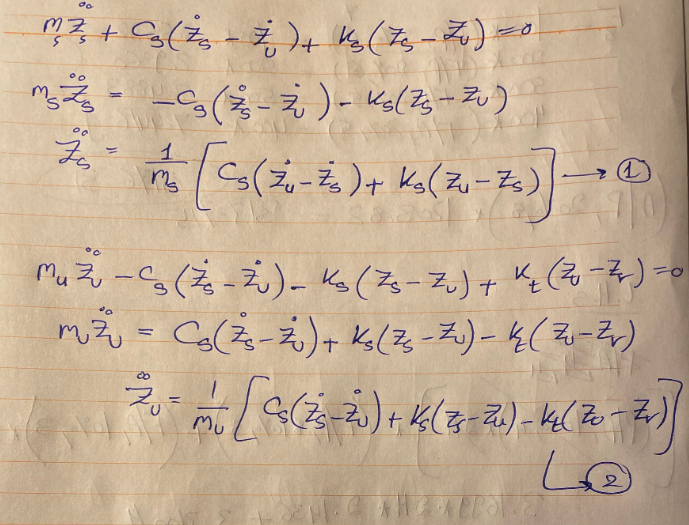 m_s z̈_s + C_s(ż_s - ż_u) + K_s(z_s - z_u) = 0
m_s z̈_s = -C_s(ż_s - ż_u) - K_s(z_s - z_u)
z̈_s = 1/m_s [C_s(ż_u - ż_s) + K_s(z_u - z_s)] → ①
m_u z̈_u - C_s(ż_s - ż_u) - K_s(z_s - z_u) + K_t(z_u - z_r) = 0
m_u z̈_u = C_s(ż_s - ż_u) + K_s(z_s - z_u) - K_t(z_u - z_r)
z̈_u = 1/m_u [C_s(ż_s - ż_u) + K_s(z_s - z_u) - K_t(z_u - z_r)]
↳ ②